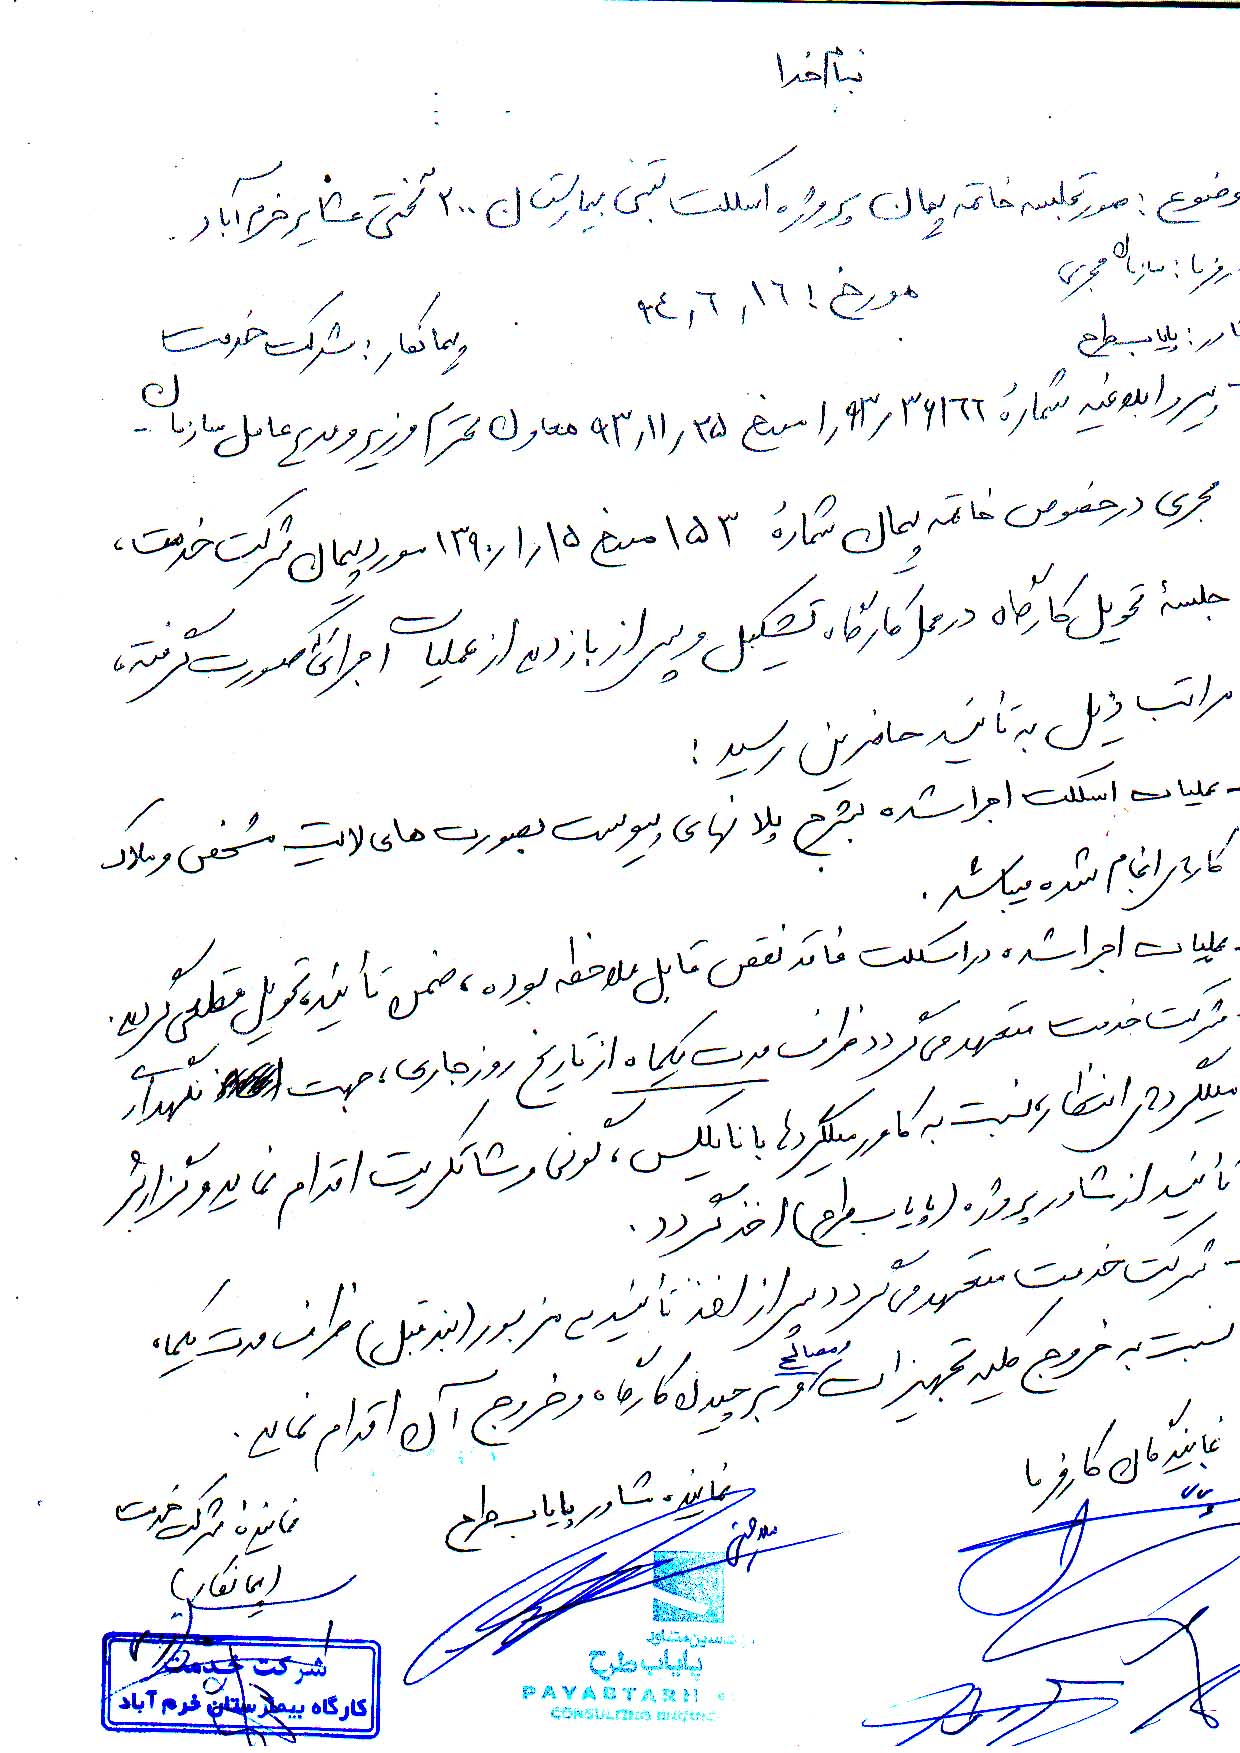 بنام خدا
وضوع: صورتجلسه خاتمه پیمان پروژه اسکلت بتنی بیمارستان ۲۰۰ تختی عشایر خرم آباد.
رفرما: سازمان مجری
مورخ: ۹۴,۶,۱۶
اور: پایاب طرح
پیمانکار: شرکت خدمت
- پیرو ابلاغیه شمارهٔ ۱٫۹۳٫۳۶۱۶۶ مورخ ۹۳٫۱۱٫۲۵ معاون محترم وزیر و مدیرعامل سازمان
مجری درخصوص خاتمه پیمان شمارهٔ ۱۵۳ مورخ ۱۳۹۰٫۱٫۱۵ مورد پیمان شرکت خدمت،
جلسهٔ تحویل کارگاه در محل کارگاه تشکیل و پس از بازدید از عملیات اجرائی صورت گرفته،
مراتب ذیل به تأئید حاضرین رسید:
- عملیات اسکلت اجرا شده بشرح پلانهای پیوست بصورت های لایت مشخص و ملاک
کارهای انجام شده میباشد.
- عملیات اجرا شده در اسکلت فاقد نقص قابل ملاحظه بوده، ضمن تأئید، تحویل قطعی گردید.
- شرکت خدمت متعهد می گردد ظرف مدت یکماه از تاریخ روز جاری، جهت نگهداری
میلگردهای انتظار، نسبت به کاور میلگردها با نایلکس، گونی و شاتکریت اقدام نماید و گزارش
تأئید از مشاور پروژه (پایاب طرح) اخذ گردد.
- شرکت خدمت متعهد می گردد پس از اخذ تأئیدیه مزبور (بند قبل) ظرف مدت یکماه
نسبت به خروج کلیه تجهیزات و مصالح و برچیدن کارگاه و خروج آن اقدام نماید.
نمایندگان کارفرما
نماینده مشاور پایاب طرح
نمایندهٔ شرکت خدمت
(پیمانکار)
سین مشاور
پایاب طرح
PAYABTARH
CONSULTING ENGINE
شرکت خدمت
کارگاه بیمارستان خرم آباد